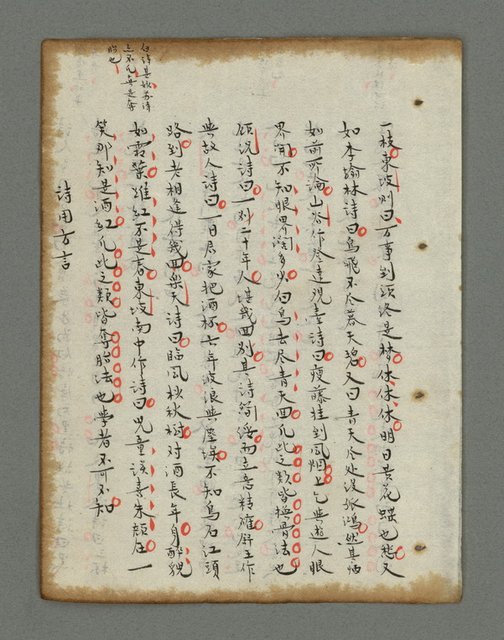 一枝東坡則曰万事到頭終是梦休休休明日黃花蝶也愁又
如李翰林詩曰鳥飛不尽暮天碧又曰青天尽处没孤鴻然其病
如前所論山谷作登達观臺詩曰瘦藤挂到風烟上乞與遊人眼
界開不知眼界闊多少白鳥去尽青天囬凡此之類皆換骨法也
顧况詩曰一別二十年人堪幾囬別其詩簡緩而立意精確舒王作
與故人詩曰一日君家把酒杯六年波浪與塵埃不知烏石江頭
路到老相逢得幾囬樂天詩曰臨風杪秋樹对酒長年身醉貌
如霜葉雖紅不是春東坡南中作詩曰児童誤喜朱顏在一
笑那知是酒紅凡此之類皆奪胎法也學者不可不知
詩用方言
白詩
是奪
胎也